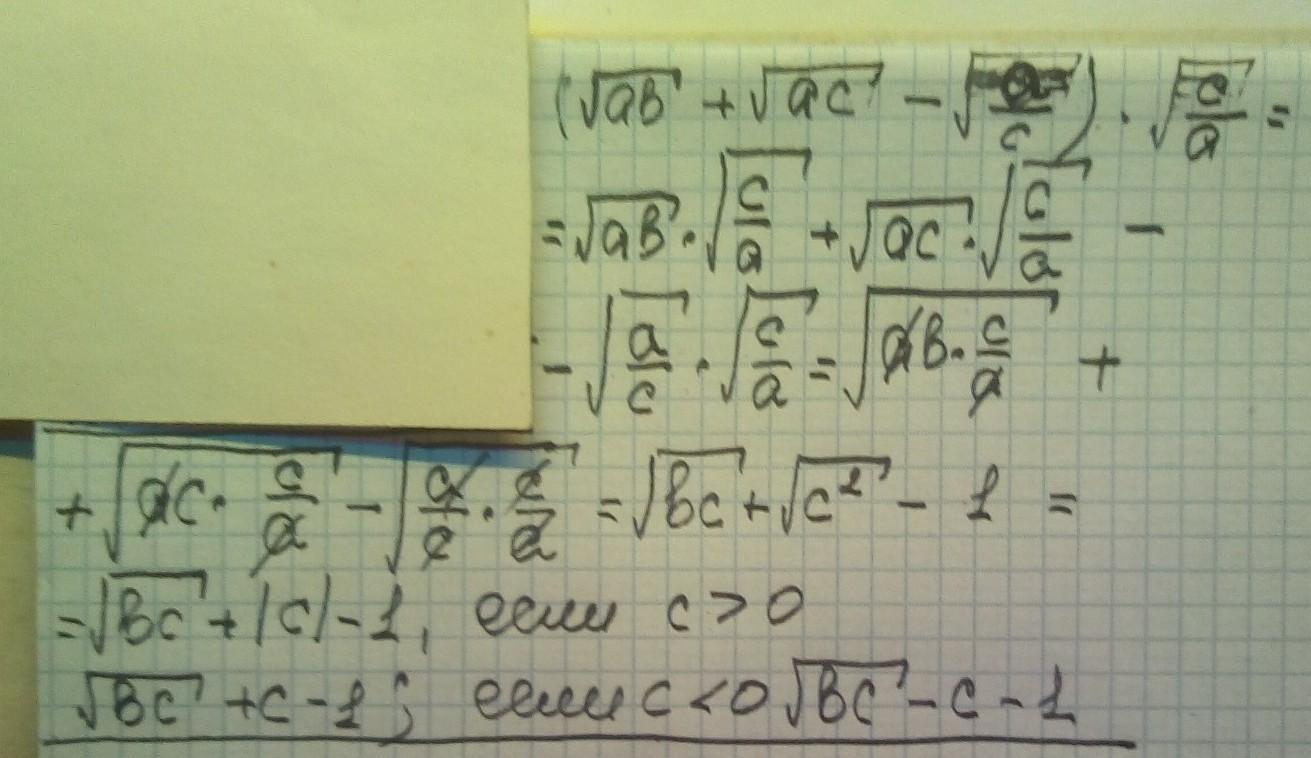 (√ab + √ac − √(a/c)) · √(c/a) =
= √ab · √(c/a) + √ac · √(c/a) −
− √(a/c) · √(c/a) = √(ab · c/a) +
+ √(ac · c/a) − √(a/c · c/a) = √bc + √c² − 1 =
= √bc + |c| − 1, если c > 0
√bc + c − 1; если c < 0 √bc − c − 1